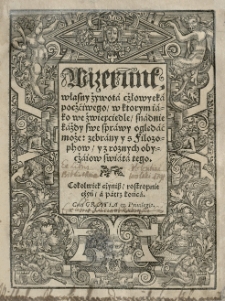 Wizerunk
własny żywota człowieka
pocżciwego, w ktorym ia-
ko we zwierciedle / snádnie
każdy swe spráwy oględáć
może: zebrány y z Filozo-
phow / y z roznych oby-
cżáiow świátá tego.
Cokolwiek cżyniſz / roſtropnie
cżyń / á pátrz końcá.
Cum GRATIA & Privilegio.